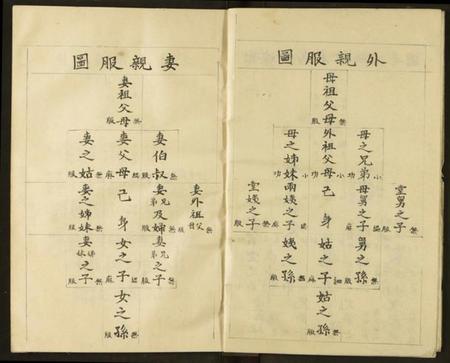 外親服圖
堂舅之子 無服
母之兄弟 小功
母舅之子 緦麻
舅之孫 無服
母祖父母 無服
外祖父母 小功
己身
姑之子 緦麻
姑之孫 無服
母之姊妹 小功
兩姨之子 緦麻
姨之孫 無服
堂姨之子 無服
妻親服圖
妻外祖父母 無服
妻伯叔 無服
妻兄弟及婦 無服
妻兄弟之子 無服
妻祖父母 無服
妻父母 緦麻
己身
女之子 緦麻
女之孫 無服
妻之姑 無服
妻之姊妹 無服
妻姊妹之子 無服